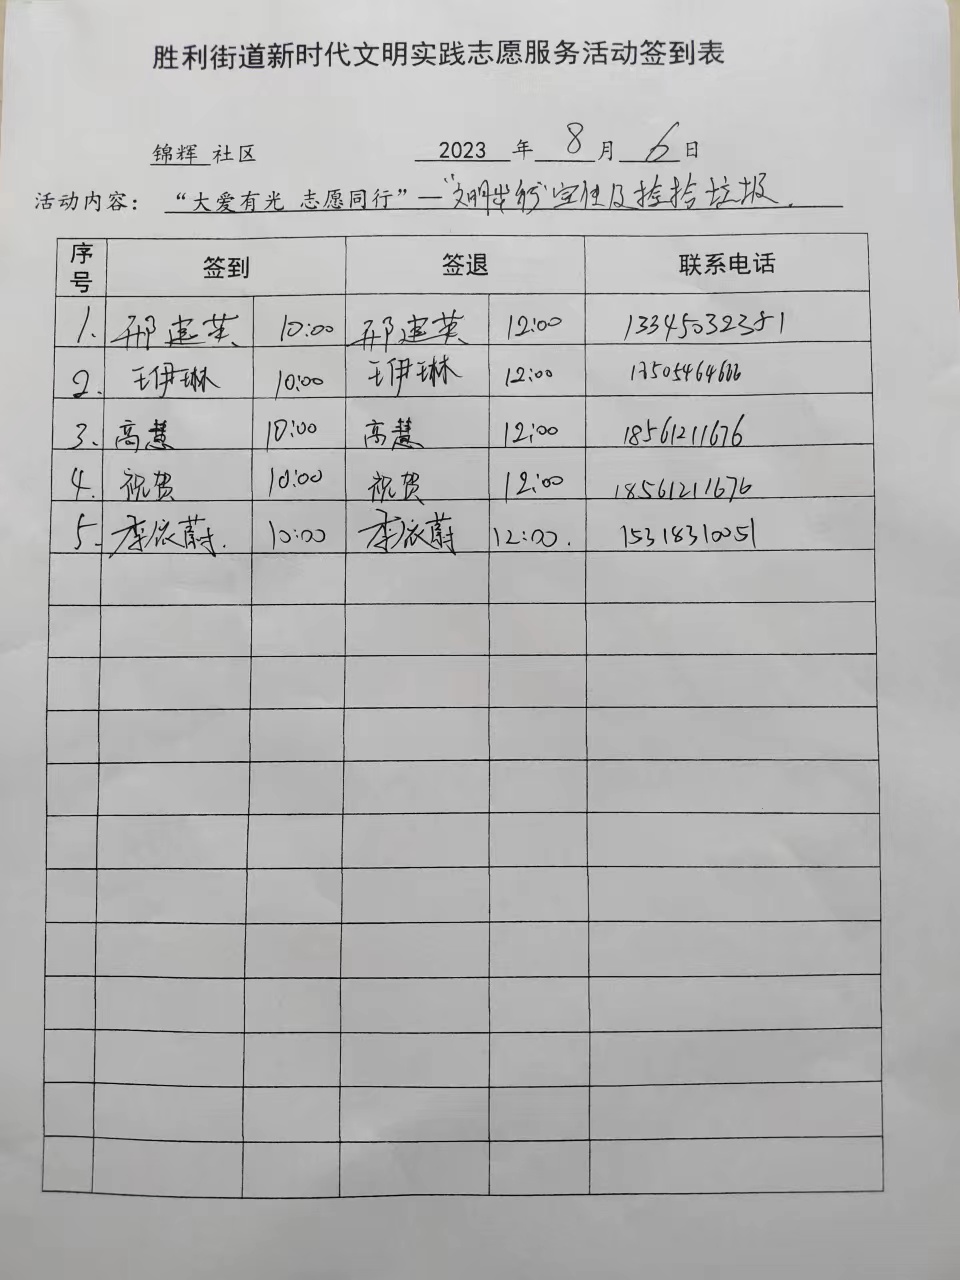 胜利街道新时代文明实践志愿服务活动签到表
锦辉 社区 2023 年 8 月 6 日
活动内容： “大爱有光 志愿同行”—“文明出行”宣传及捡拾垃圾.
序号 签到 签退 联系电话
1. 邢建英 10:00 邢建英 12:00 13345032381
2. 王伊琳 10:00 王伊琳 12:00
3. 高慧 10:00 高慧 12:00 18561211676
4. 祝贺 10:00 祝贺 12:00 18561211676
5. 李依蔚. 10:00 李依蔚 12:00. 15318310051